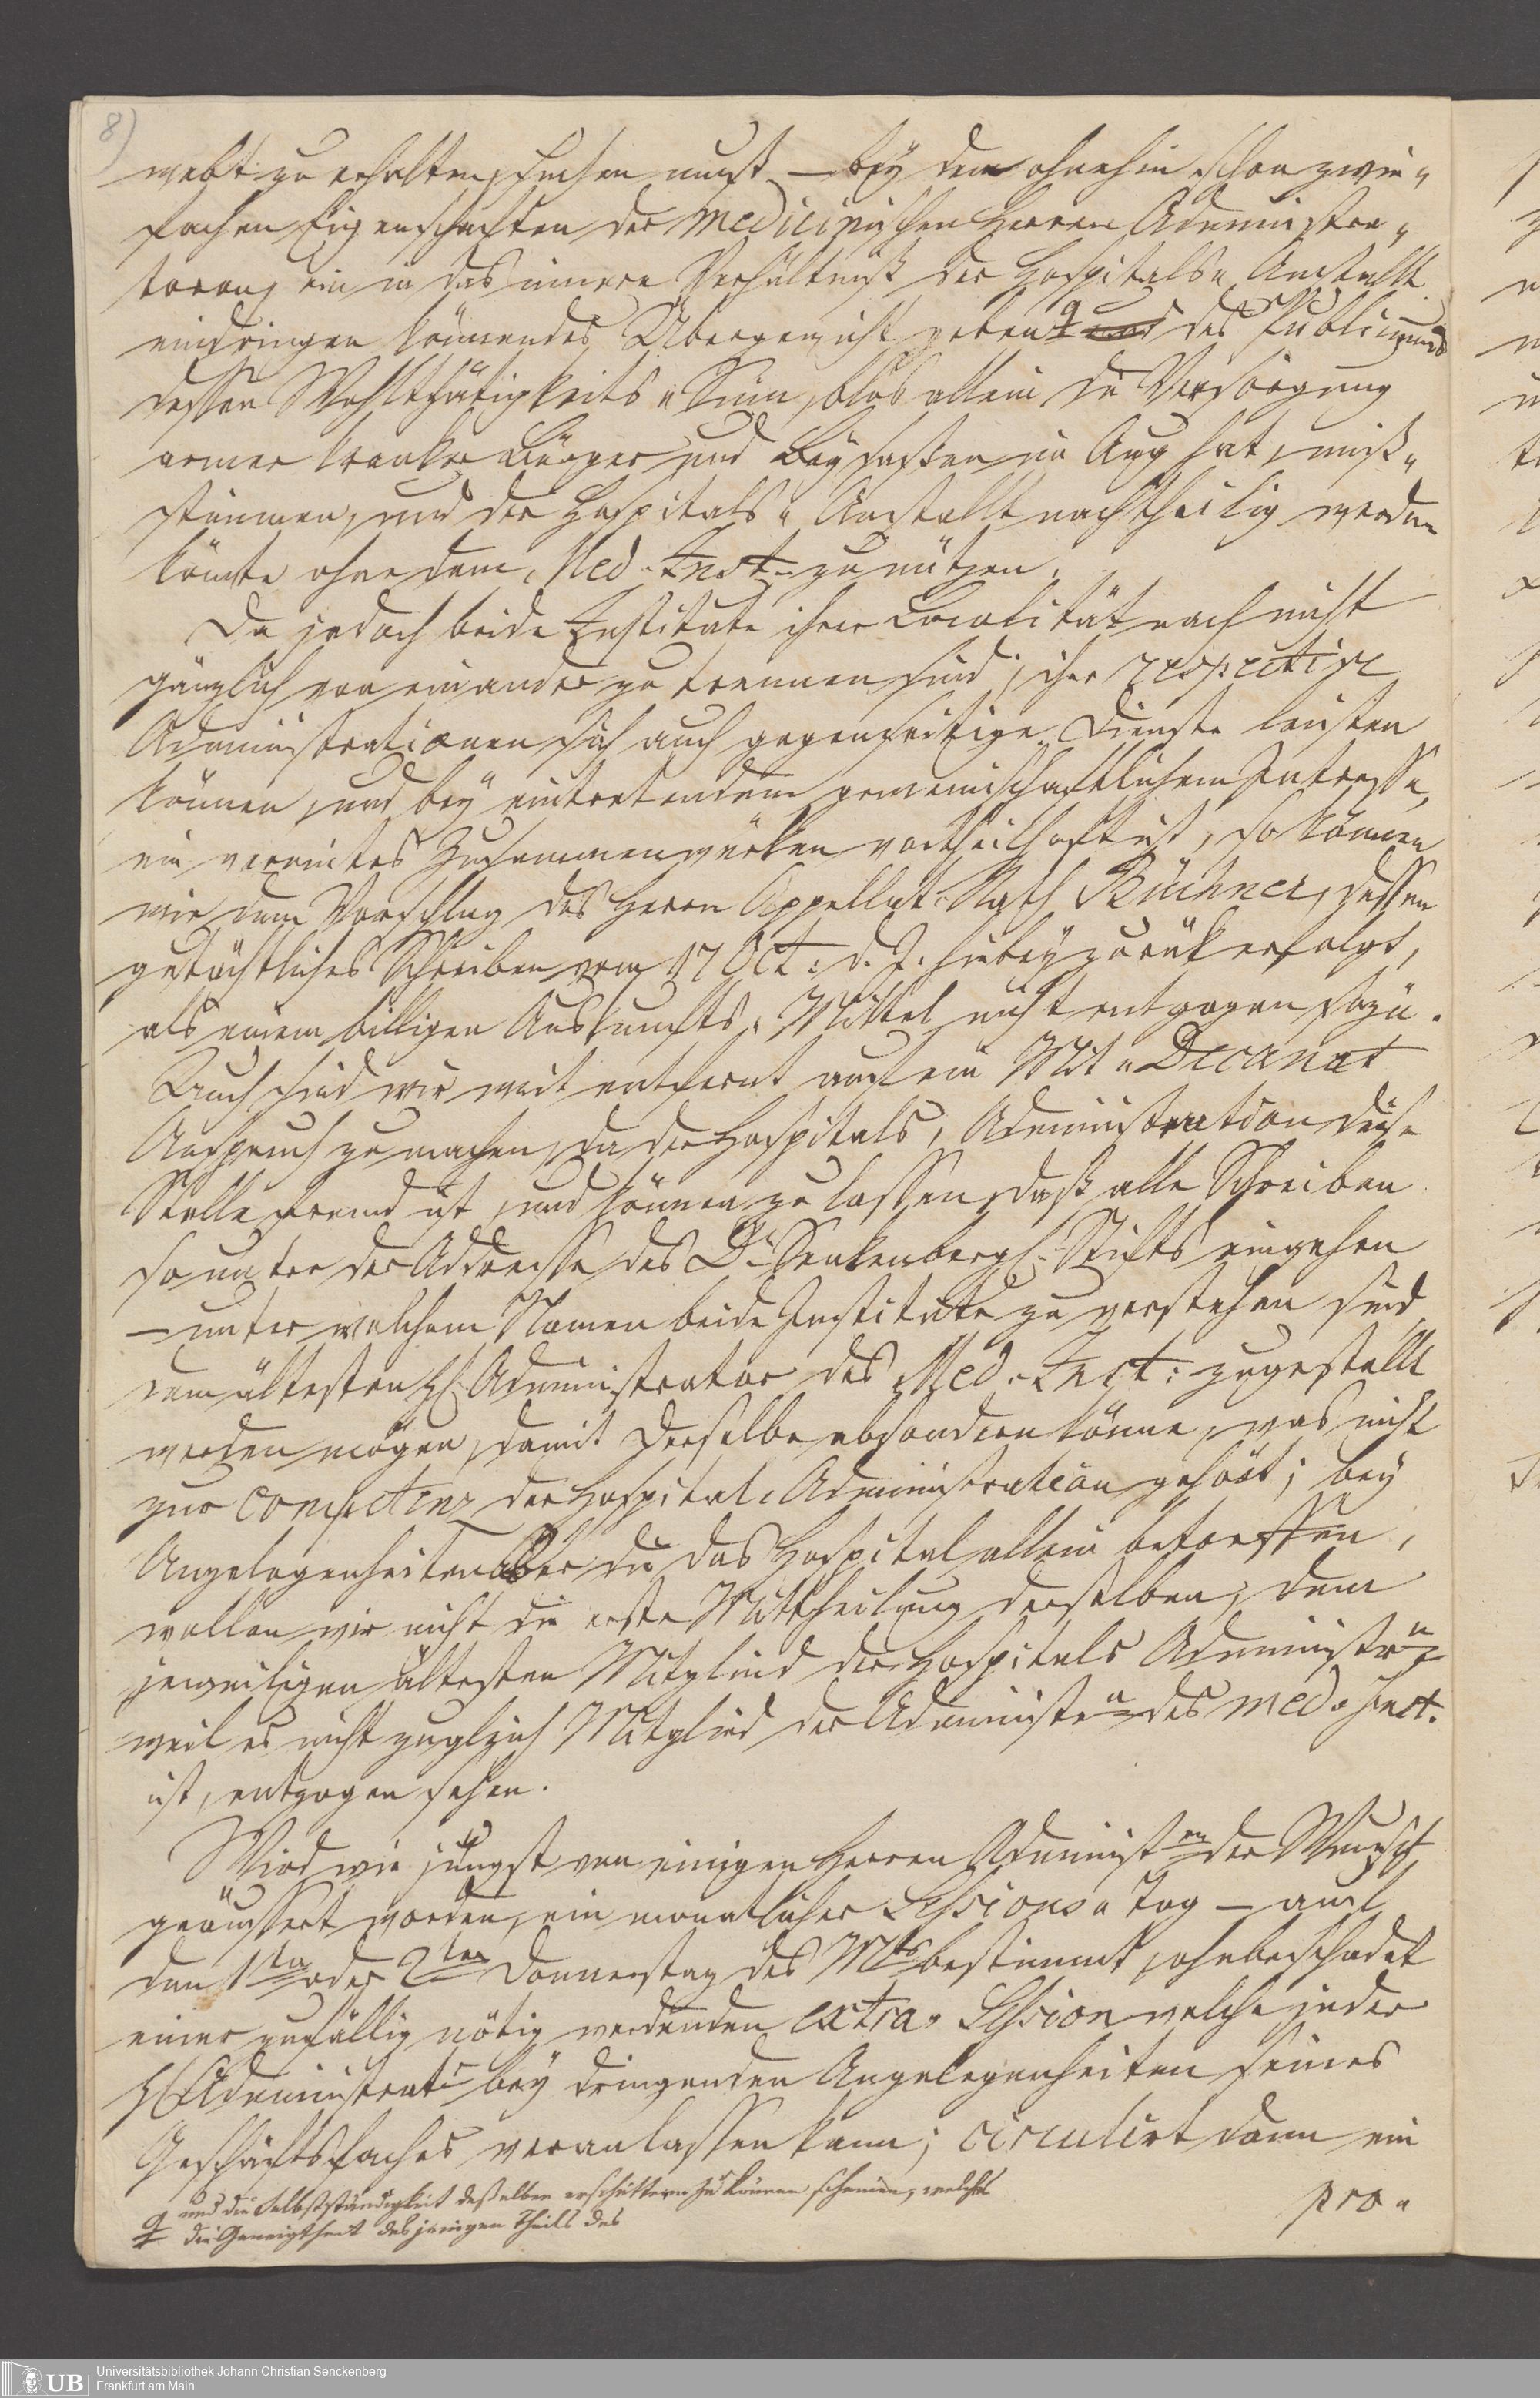 8)
webt zu erhalten suchen muß – bey den ohnehin schon zwie„
fachen Eigenschaften der Medicinischen Herren Administra„
toren, ein in das innere Verhältniß der Hospitals„Anstallt
eindringen könnendes Übergewicht geben des Publicums
dessen Wohlthätigkeits„Sinn, blos allein die Versorgung
armer kranker Bürger und Beysaßen im Aug hat, miß„
stimmen, und der Hospitals„Anstallt nachtheilig werden
könte ohne dem Med. Inst. zu nützen.
Da jedoch beide Institute ihrer Localität nach nicht
gänzlich von einander zu trennen sind; ihre respective
Administrationen sich auch gegenseitige Dienste leisten
können, und bey eintretendem gemeinschaftlichem Interesse,
ein vereintes Zusammenwürken vortheilhaft ist, so können
wir dem Vorschlag des Herrn Appellat. Rath Büchner, dessen
gutächtliches Schreiben vom 17 Oct: d. J. hiebey zurük erfolgt,
als einem billigen Auskunfts„Mittel nicht entgegen seyn.
Auch sind wir weit entfernt auf ein Mit„Decanat
Anspruch zu machen, da der Hospitals„Administration diese
Stelle fremd ist, und können zulassen, daß alle Schreiben
so unter der Addresse des Dr Senkenbergs. Stifts eingehen
– unter welchem Namen beide Institute zu verstehen sind
dem ältesten H. Administrator des Med. Inst: zugestellt
werden mögen, damit derselbe absondern könne, was nicht
zur Competenz der Hospital„Administration gehört; bey
Angelegenheiten aber die das Hospital allein betreffen,
wollen wir nicht die erste Mittheilung derselben, dem
jeweiligen ältesten Mitglied der Hospitals Administrn
weil es nicht zugleich Mitglied der Administrn des med. Inst.
ist, entzogen sehen.
Wird wie jüngst von einigen Herren Administen der Wunsch
geäussert worden, ein monatlicher Sessions„Tag – auf
den 1ten oder 2ten Donnerstag des Mts bestimmt, ohnbeschadet
einer zufällig nötig werdenden extra„Session welche jeder
H. Administratr bey dringenden Angelegenheiten seines
Geschäftsfaches veranlassen kann; circulirt dann ein
pro„
und die Selbstständigkeit desselben erschüttern zu können scheinen, welches
die Geneigtheit desjenigen Theils des
UB Universitätsbibliothek Johann Christian Senckenberg
Frankfurt am Main